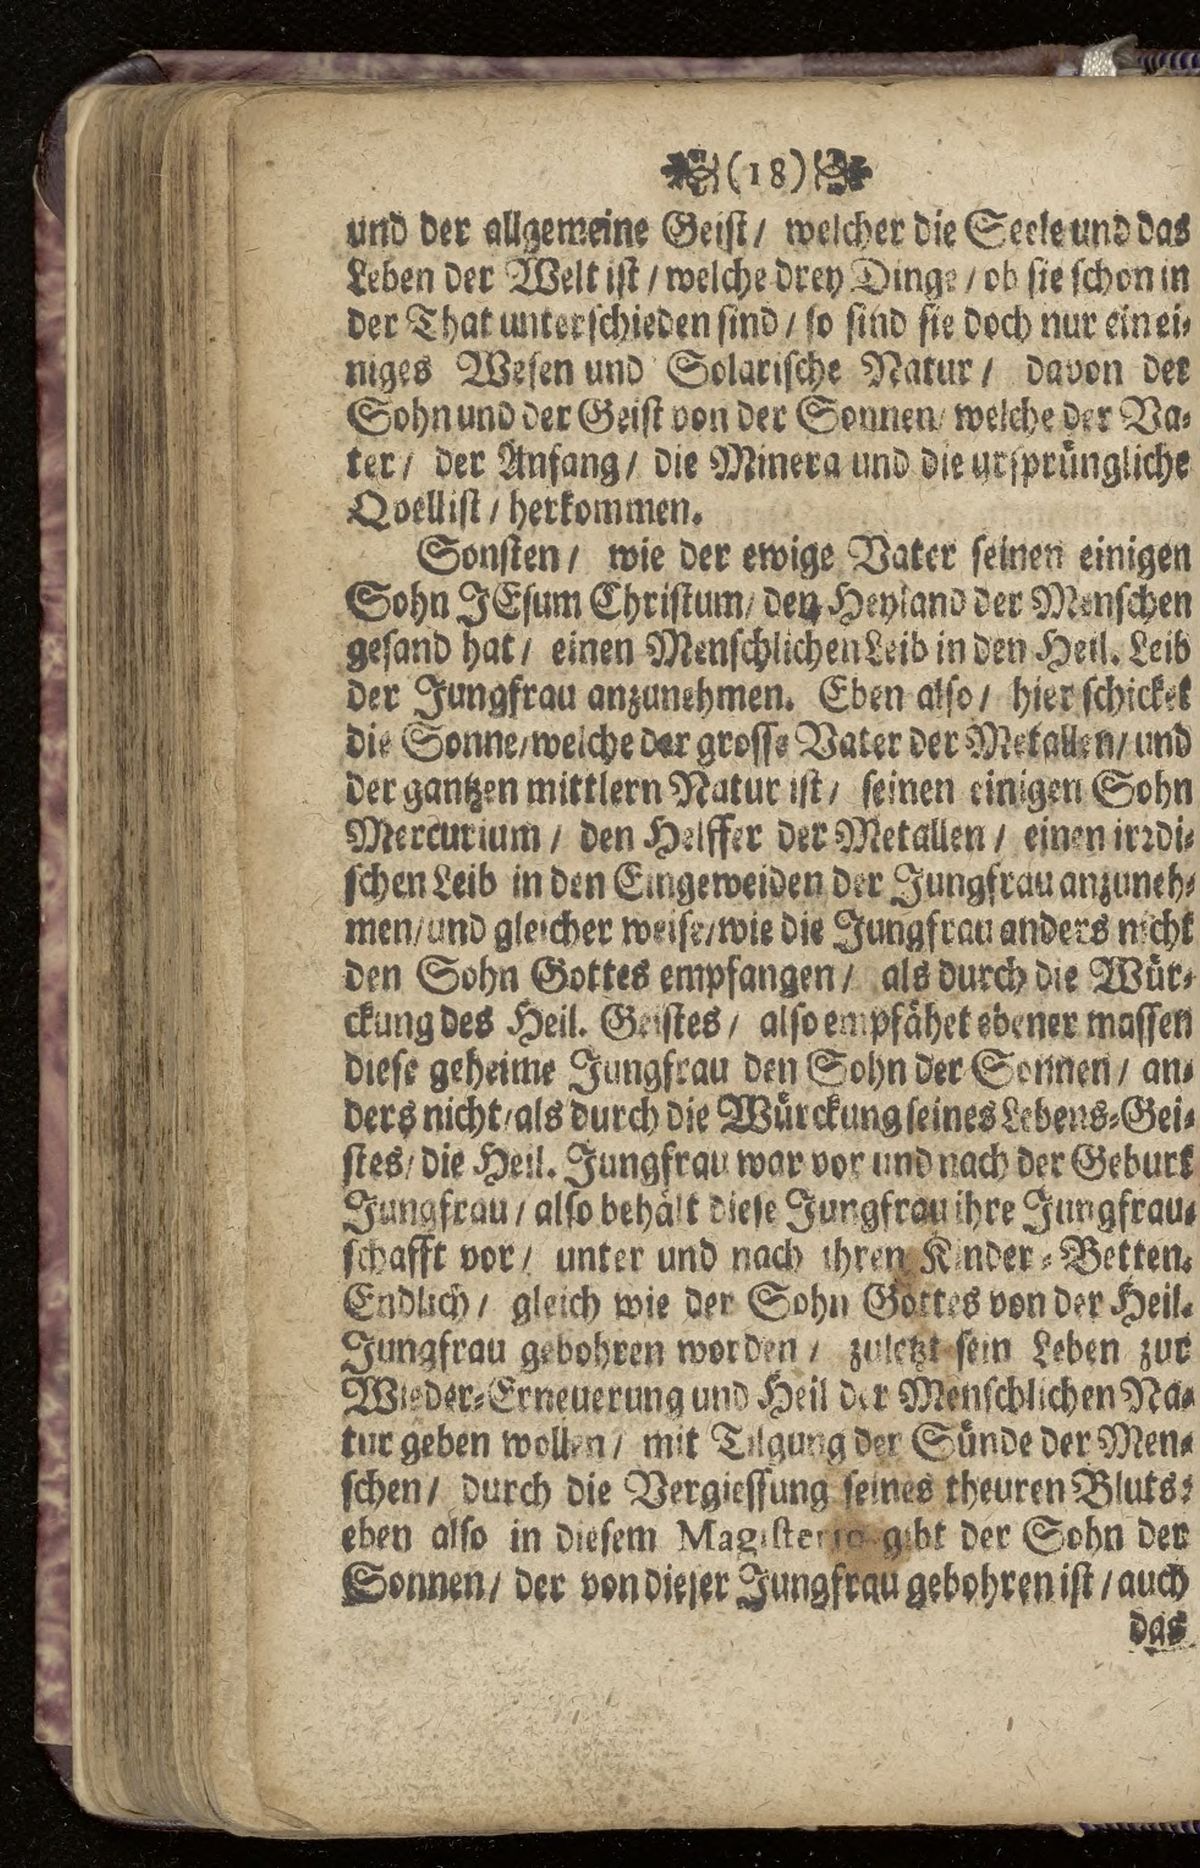 (18)
und der allgemeine Geist / welcher die Seele und das
Leben der Welt ist / welche drey Dinge / ob sie schon in
der That unterschieden sind / so sind sie doch nur ein ei-
niges Wesen und Solarische Natur / davon der
Sohn und der Geist von der Sonnen / welche der Va-
ter / der Anfang / die Minera und die ursprüngliche
Qvell ist / herkommen.
Sonsten / wie der ewige Vater seinen einigen
Sohn JEsum Christum / den Heyland der Menschen
gesand hat / einen Menschlichen Leib in den Heil. Leib
der Jungfrau anzunehmen. Eben also / hier schicket
die Sonne / welche der grosse Vater der Metallen / und
der gantzen mittlern Natur ist / seinen einigen Sohn
Mercurium / den Helffer der Metallen / einen irrdi-
schen Leib in den Eingeweiden der Jungfrau anzuneh-
men / und gleicher weise / wie die Jungfrau anders nicht
den Sohn Gottes empfangen / als durch die Wür-
ckung des Heil. Geistes / also empfähet ebener massen
diese geheime Jungfrau den Sohn der Sonnen / an-
ders nicht / als durch die Würckung seines Lebens-Gei-
stes / die Heil. Jungfrau war vor und nach der Geburt
Jungfrau / also behält diese Jungfrau ihre Jungfrau-
schafft vor / unter und nach ihren Kinder-Betten.
Endlich / gleich wie der Sohn Gottes von der Heil.
Jungfrau gebohren worden / zuletzt sein Leben zur
Wieder-Erneuerung und Heil der Menschlichen Na-
tur geben wollen / mit Tilgung der Sünde der Men-
schen / durch die Vergiessung seines theuren Bluts:
eben also in diesem Magisterio gibt der Sohn der
Sonnen / der von dieser Jungfrau gebohren ist / auch
das